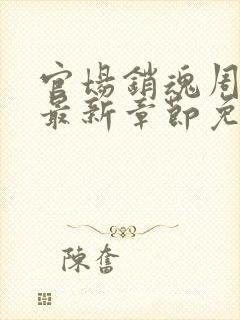 官場銷魂周
最新章節免
陳奮